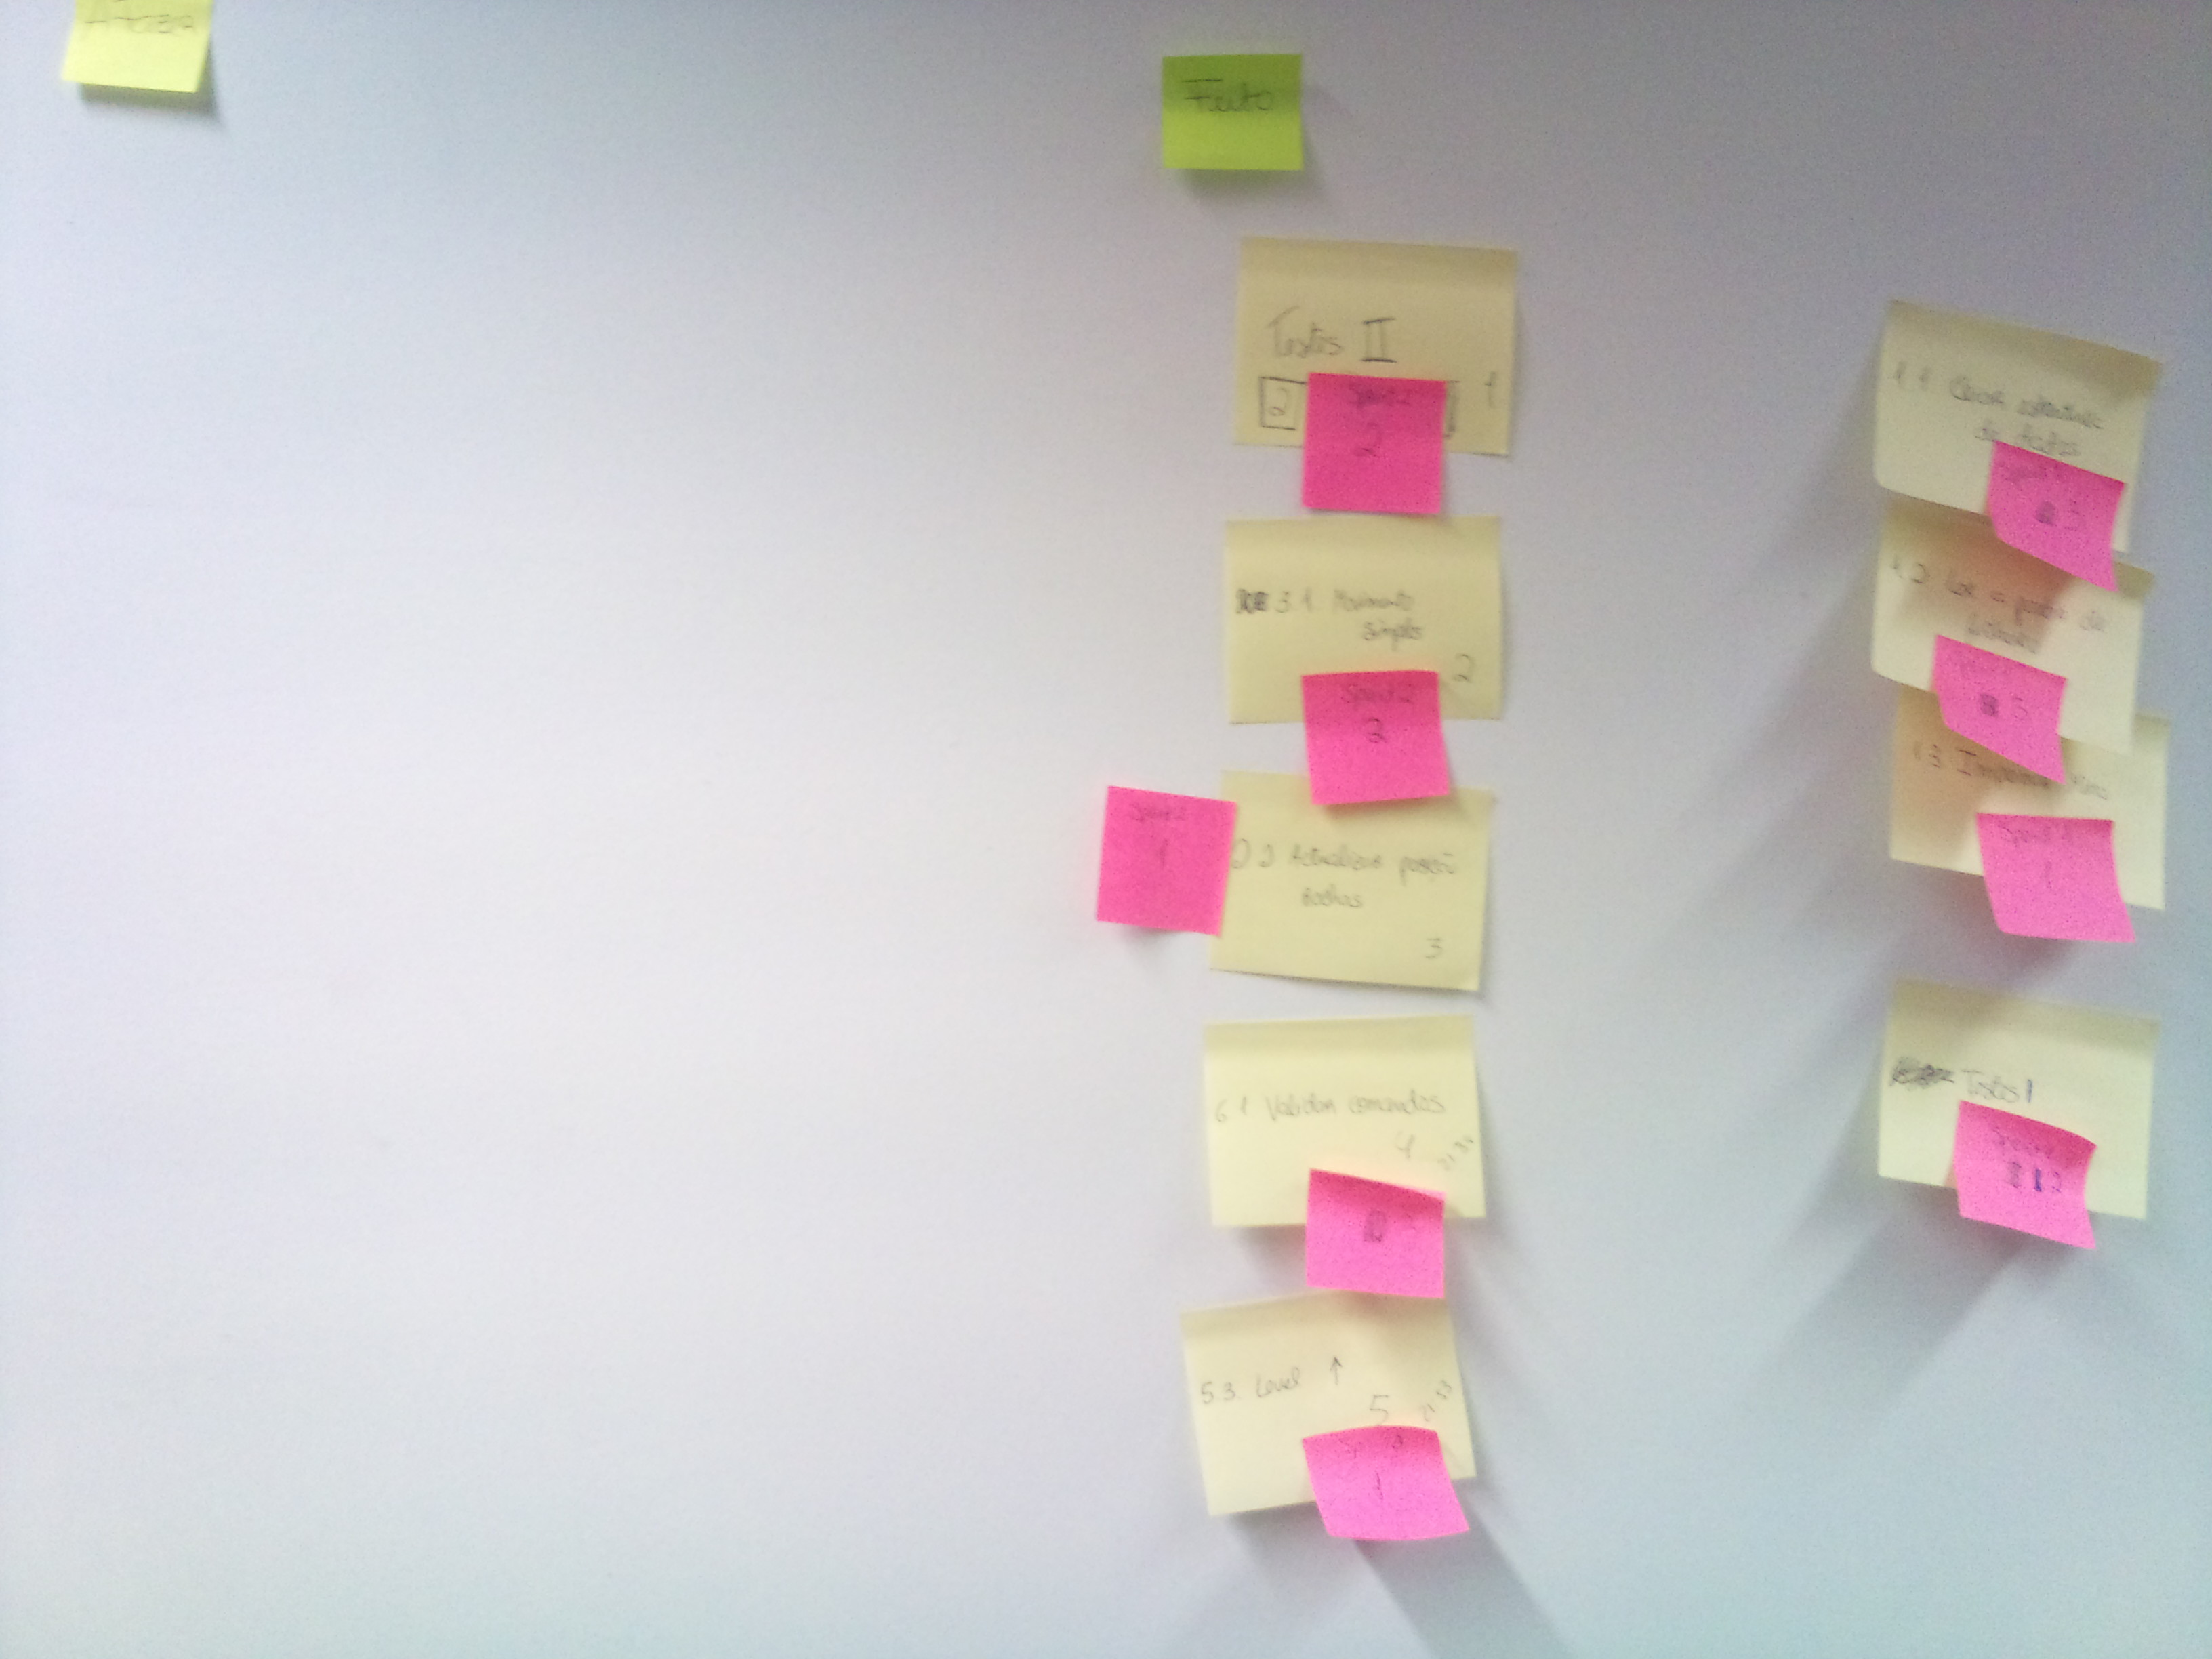 Feito
Testes II
2
1
Sprint 2
2
3.1 Movimento
simples
2
Sprint 2
3
Sprint 2
1
2.2 Actualizar posição
Rochas
3
6.1 Validar comandos
4
5.3. Level ↑
5
1
1.1 Criar estrutura
de dados
3
1.2 Ler a partir do
3
1.3 Imprimir
Sprint 1
1
Testes I
2